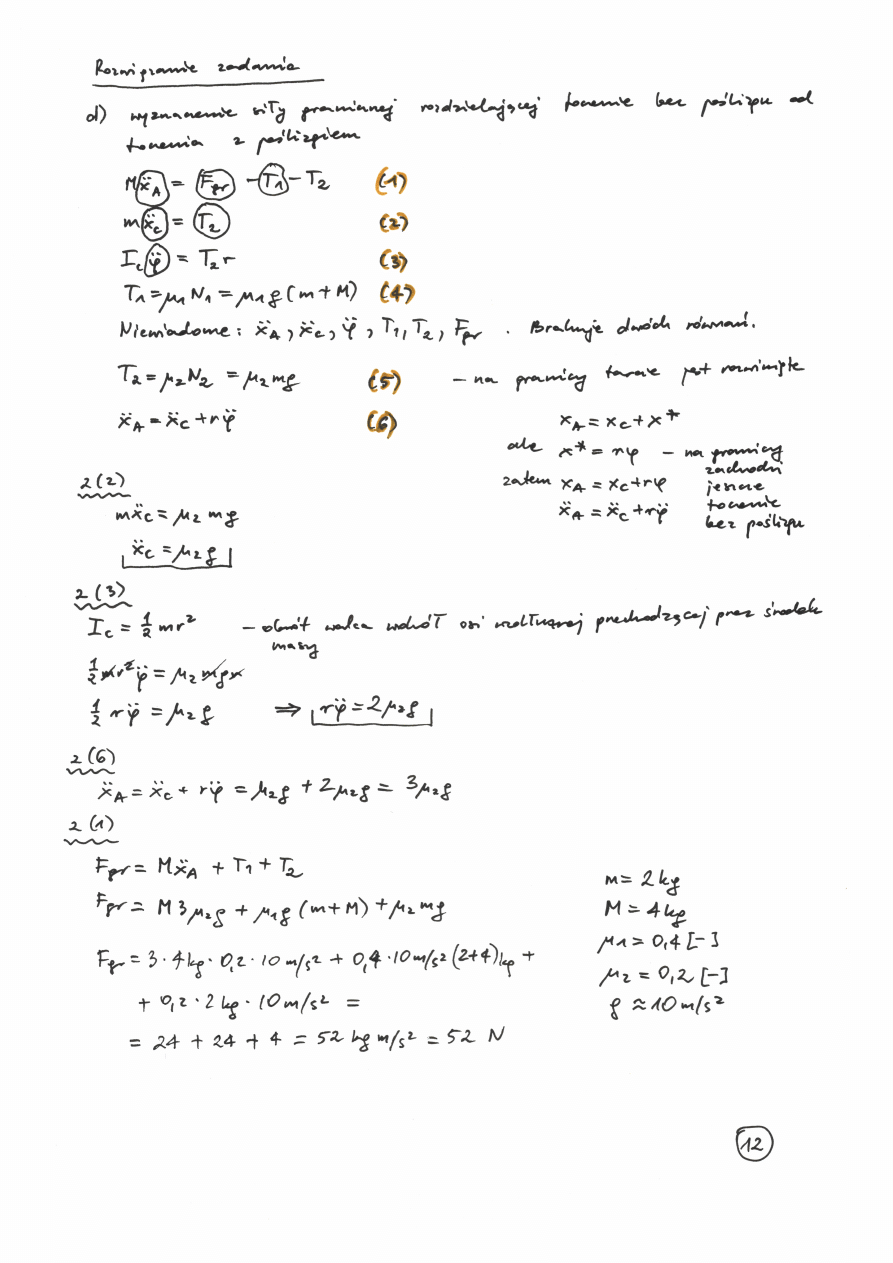 Rozwiązanie zadania
d) wyznaczenie siły granicznej rozdzielającej toczenie bez poślizgu od
toczenia z poślizgiem
Mẍ_A = F_gr - T₁ - T₂ (1)
mẍ_c = T₂ (2)
I_c φ̈ = T₂r (3)
T₁ = μ₁N₁ = μ₁g(m+M) (4)
Niewiadome: ẍ_A, ẍ_c, φ̈, T₁, T₂, F_gr. Brakuje dwóch równań.
T₂ = μ₂N₂ = μ₂mg (5) – na granicy tarcie jest rozwinięte
ẍ_A = ẍ_C + rφ̈ (6)
x_A = x_C + x*
ale x* = rφ – na granicy
zachodzi
zatem x_A = x_C + rφ jeszcze
ẍ_A = ẍ_C + rφ̈ toczenie
bez poślizgu
z (2)
mẍ_C = μ₂mg
ẍ_C = μ₂g
z (3)
I_c = ½ mr² – obrót walca wokół osi wzdłużnej przechodzącej przez środek
masy
½ mr²φ̈ = μ₂mgr
½ rφ̈ = μ₂g ⇒ rφ̈ = 2μ₂g
z (6)
ẍ_A = ẍ_c + rφ̈ = μ₂g + 2μ₂g = 3μ₂g
z (1)
F_gr = Mẍ_A + T₁ + T₂
F_gr = M3μ₂g + μ₁g(m+M) + μ₂mg
F_gr = 3·4kg·0,2·10m/s² + 0,4·10m/s²(2+4)kg +
+ 0,2·2kg·10m/s² =
= 24 + 24 + 4 = 52 kg m/s² = 52 N
m = 2kg
M = 4kg
μ₁ = 0,4 [-]
μ₂ = 0,2 [-]
g ≈ 10m/s²
12